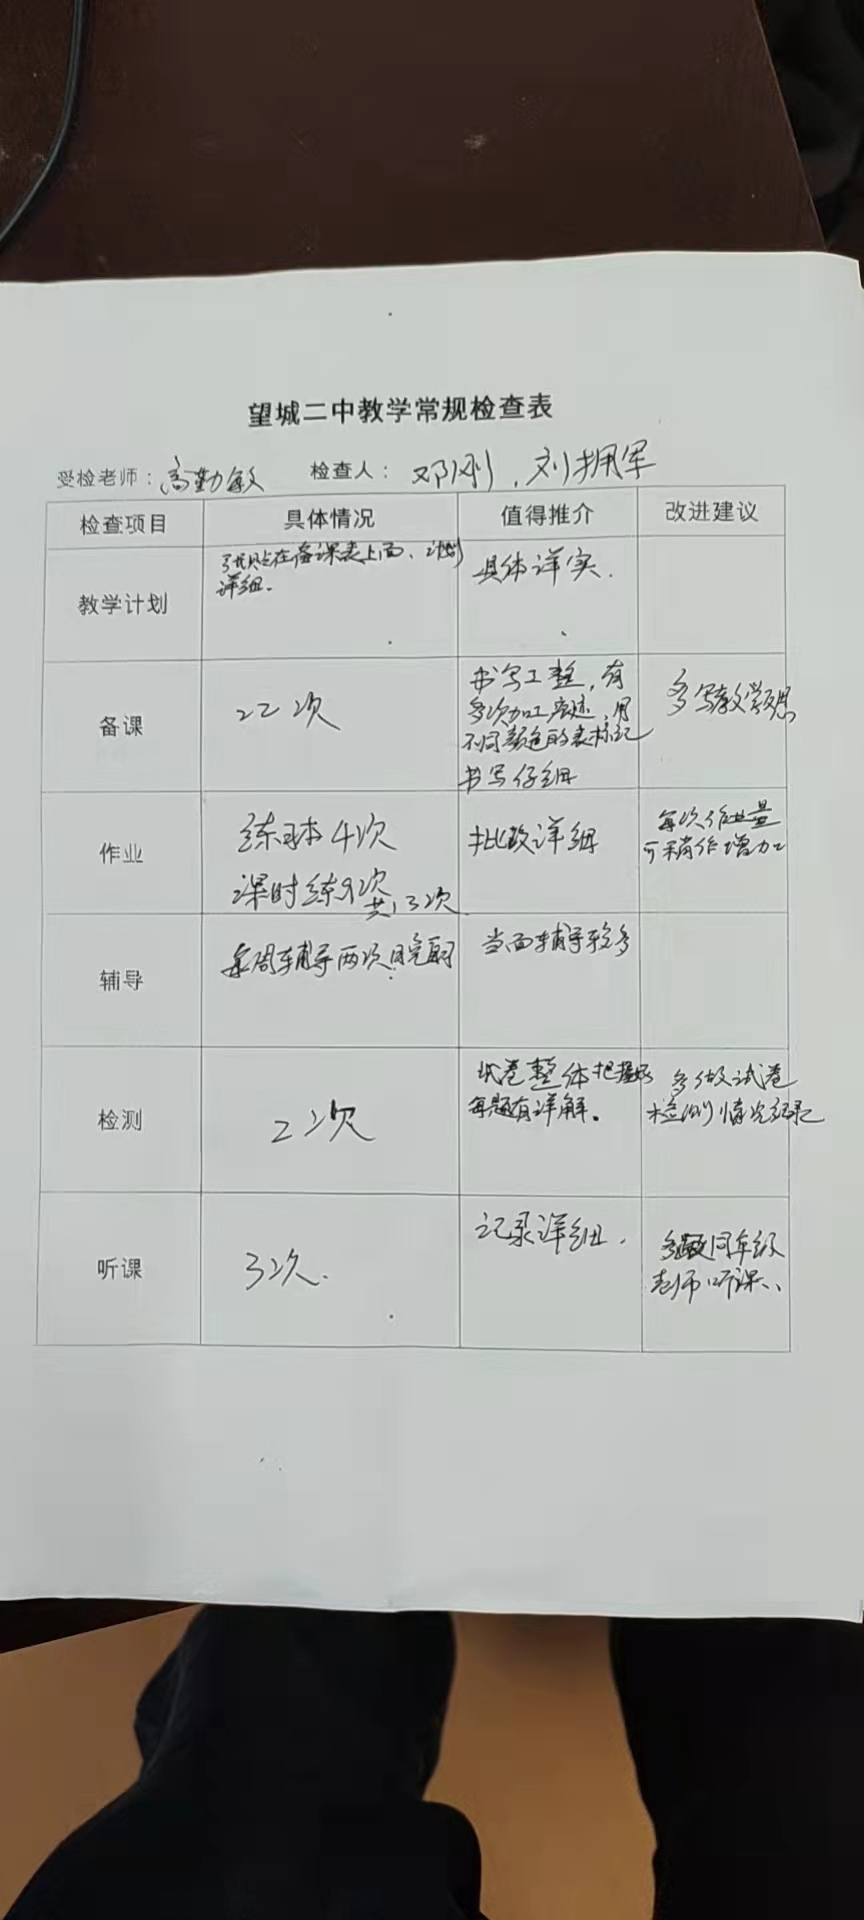 望城二中教学常规检查表
受检老师：高勤敏 检查人：邓刚，刘拥军
检查项目 具体情况 值得推介 改进建议
教学计划
张贴在备课表上面、计划
详细.
具体详实.
备课
22次
书写工整，有
多次加工痕迹，用
不同颜色的表标记
书写仔细
多写教学反思
作业
练习本4次
课时练9次
共13次
批改详细
每次作业量
可稍作增加
辅导
每周辅导两次
当面辅导较多
检测
2次
试卷整体把握好
每题有详解。
多做试卷
检测情况记录
听课
3次.
记录详细.
同年级
老师听课